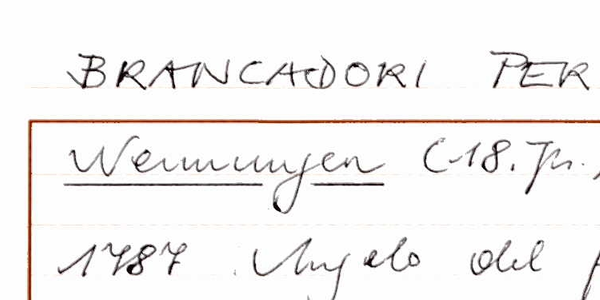 BRANCADORI PER
Nennungen (18. Jh.
1787 Angelo del